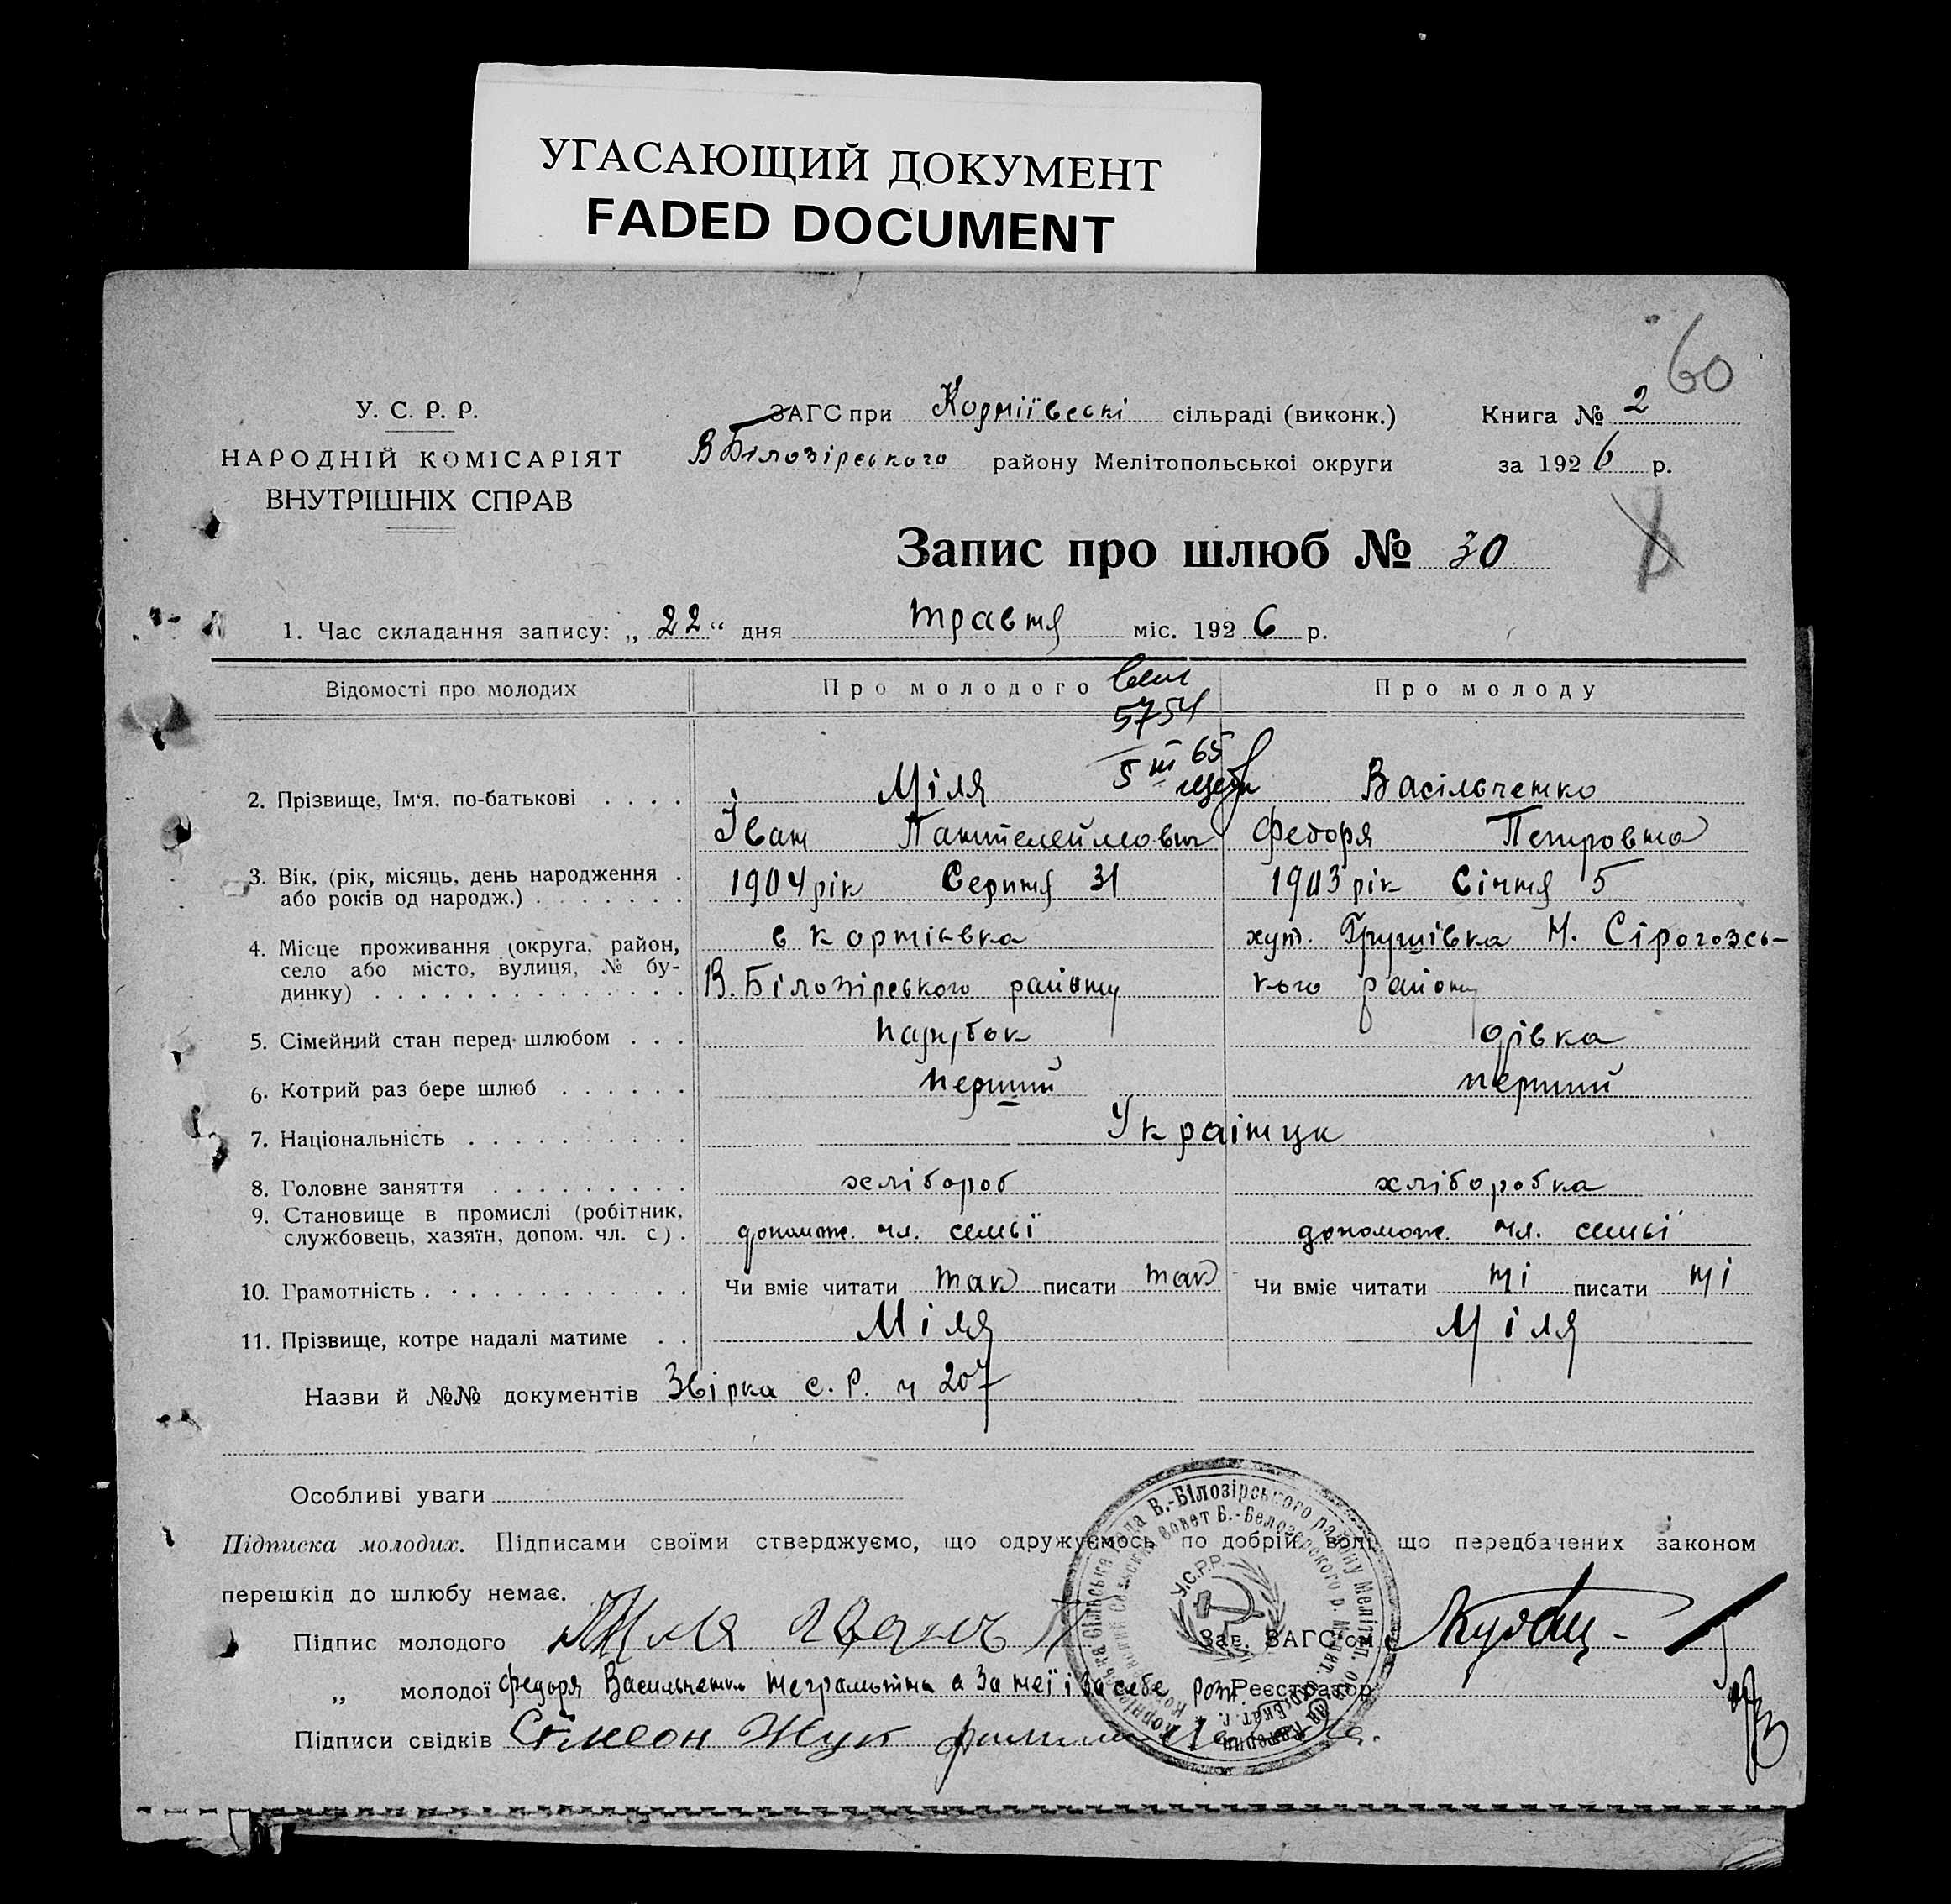 УГАСАЮЩИЙ ДОКУМЕНТ
FADED DOCUMENT
60
У. С. Р. Р.
НАРОДНІЙ КОМІСАРІЯТ
ВНУТРІШНІХ СПРАВ
ЗАГС при Корніївські сільраді (виконк.)
В Білозірського району Мелітопольської округи
Книга № 2
за 1926 р.
Запис про шлюб № 30
1. Час складання запису: „ 22 " дня травня міс. 1926 р.
Відомості про молодих Про молодого Про молоду
5754
5 III 65
2. Прізвище, Ім'я, по-батькові . . . . Міля Васільченко
Іван Пантелеймович Федоря Петровна
3. Вік, (рік, місяць, день народження . 1904 рік Серпня 31 1903 рік Січня 5
або років од народж.) . . . . . . .
4. Місце проживання (округа, район, с Корніівка хут. Грушівка Н. Сірогозсь-
село або місто, вулиця, № бу-
динку) . . . . . . . . . . . . . . . В. Білозірського району кого району
5. Сімейний стан перед шлюбом . . . Парубок дівка
6. Котрий раз бере шлюб . . . . . . Перший перший
7. Національність . . . . . . . . . . Українци
8. Головне заняття . . . . . . . . . хлібороб хліборобка
9. Становище в промислі (робітник,
службовець, хазяїн, допом. чл. с) . допомож. чл. семьї допомож. чл. семьї
10. Грамотність . . . . . . . . . . . . Чи вміє читати так писати так Чи вміє читати ні писати ні
11. Прізвище, котре надалі матиме . . Міля Міля
Назви й №№ документів Звірка с. Р. ч 207
Особливі уваги
Підписка молодих. Підписами своїми стверджуємо, що одружуємось по добрій волі, що передбачених законом
перешкід до шлюбу немає.
Підпис молодого Миля Зав. ЗАГС'ом
„ молодої Федоря Васильченко неграмотна а За неї і За себе роз. Реєстратор
Підписи свідків Симеон Жук
В.-Білозірського району Меліт.
У.С.Р.Р.